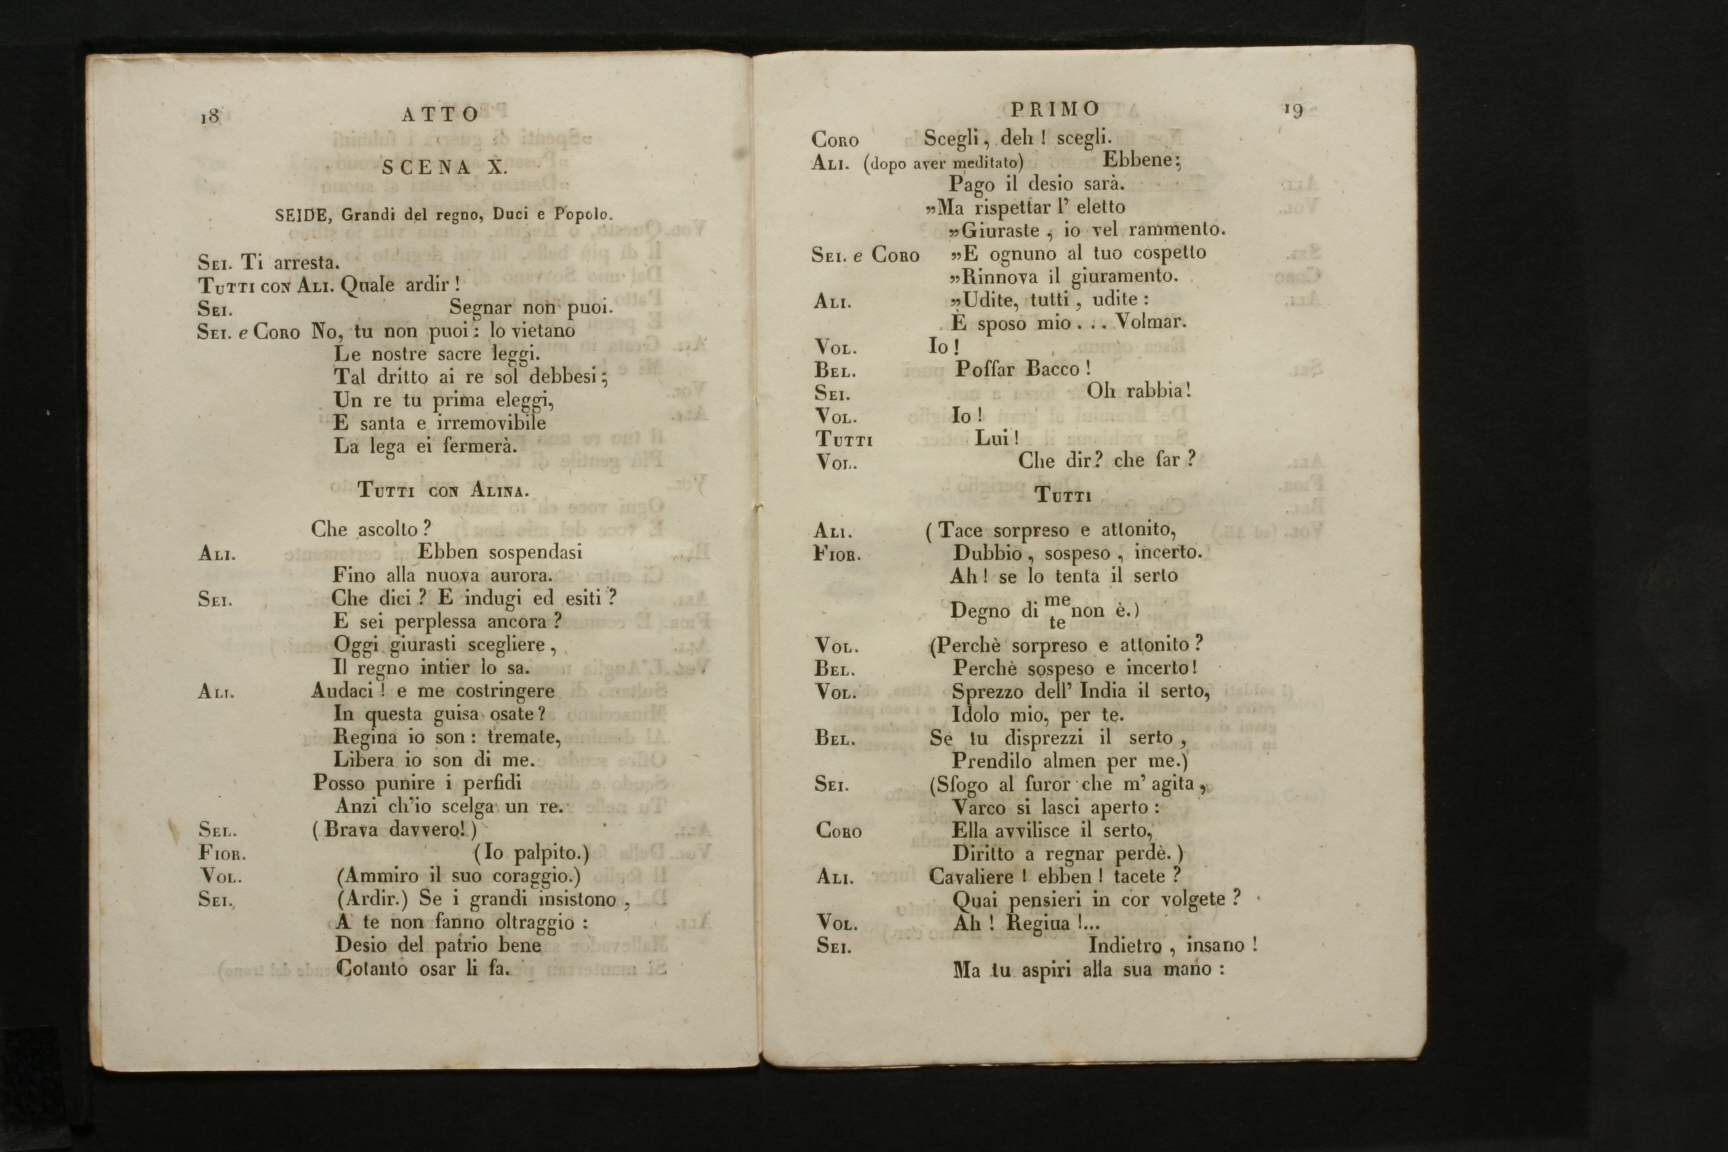 18 ATTO
SCENA X.
SEIDE, Grandi del regno, Duci e Popolo.
SEI. Ti arresta.
TUTTI CON ALI. Quale ardir !
SEI. Segnar non puoi.
SEI. e CORO No, tu non puoi : lo vietano
Le nostre sacre leggi.
Tal dritto ai re sol debbesi ;
Un re tu prima eleggi,
E santa e irremovibile
La lega ei fermerà.
TUTTI CON ALINA.
Che ascolto ?
ALI. Ebben sospendasi
Fino alla nuova aurora.
SEI. Che dici ? E indugi ed esiti ?
E sei perplessa ancora ?
Oggi giurasti scegliere ,
Il regno intier lo sa.
ALI. Audaci ! e me costringere
In questa guisa osate ?
Regina io son : tremate,
Libera io son di me.
Posso punire i perfidi
Anzi ch'io scelga un re.
SEL. ( Brava davvero! )
FIOR. (Io palpito.)
VOL. (Ammiro il suo coraggio.)
SEI. (Ardir.) Se i grandi insistono ,
A te non fanno oltraggio :
Desio del patrio bene
Cotanto osar li fa.
PRIMO 19
CORO Scegli , deh ! scegli.
ALI. (dopo aver meditato) Ebbene ;
Pago il desio sarà.
„Ma rispettar l' eletto
„Giuraste , io vel rammento.
SEI. e CORO „E ognuno al tuo cospetto
„Rinnova il giuramento.
ALI. „Udite, tutti , udite :
È sposo mio . . . Volmar.
VOL. Io !
BEL. Poffar Bacco !
SEI. Oh rabbia !
VOL. Io !
TUTTI Lui !
VOL. Che dir ? che far ?
TUTTI
ALI. ( Tace sorpreso e attonito,
FIOR. Dubbio , sospeso , incerto.
Ah ! se lo tenta il serto
Degno di me te non è.)
VOL. (Perchè sorpreso e attonito ?
BEL. Perchè sospeso e incerto !
VOL. Sprezzo dell' India il serto,
Idolo mio, per te.
BEL. Se tu disprezzi il serto ,
Prendilo almen per me.)
SEI. (Sfogo al furor che m' agita ,
Varco si lasci aperto :
CORO Ella avvilisce il serto,
Diritto a regnar perdè. )
ALI. Cavaliere ! ebben ! tacete ?
Quai pensieri in cor volgete ?
VOL. Ah ! Regiua !...
SEI. Indietro , insano !
Ma tu aspiri alla sua mano :